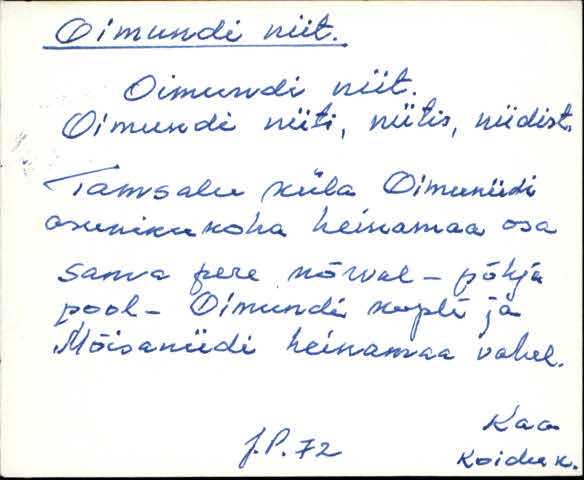 Oimundi niit.
Oimundi niit.
Oimundi niiti, niitis, niidist.
Tamsalu küla Oimuniidi
asunikukoha heinamaa osa
sama pere kõrval - põhja
pool - Oimundi kopli ja
Mõisaniidi heinamaa vahel.
Kao
J.P. 72
Koiduk.